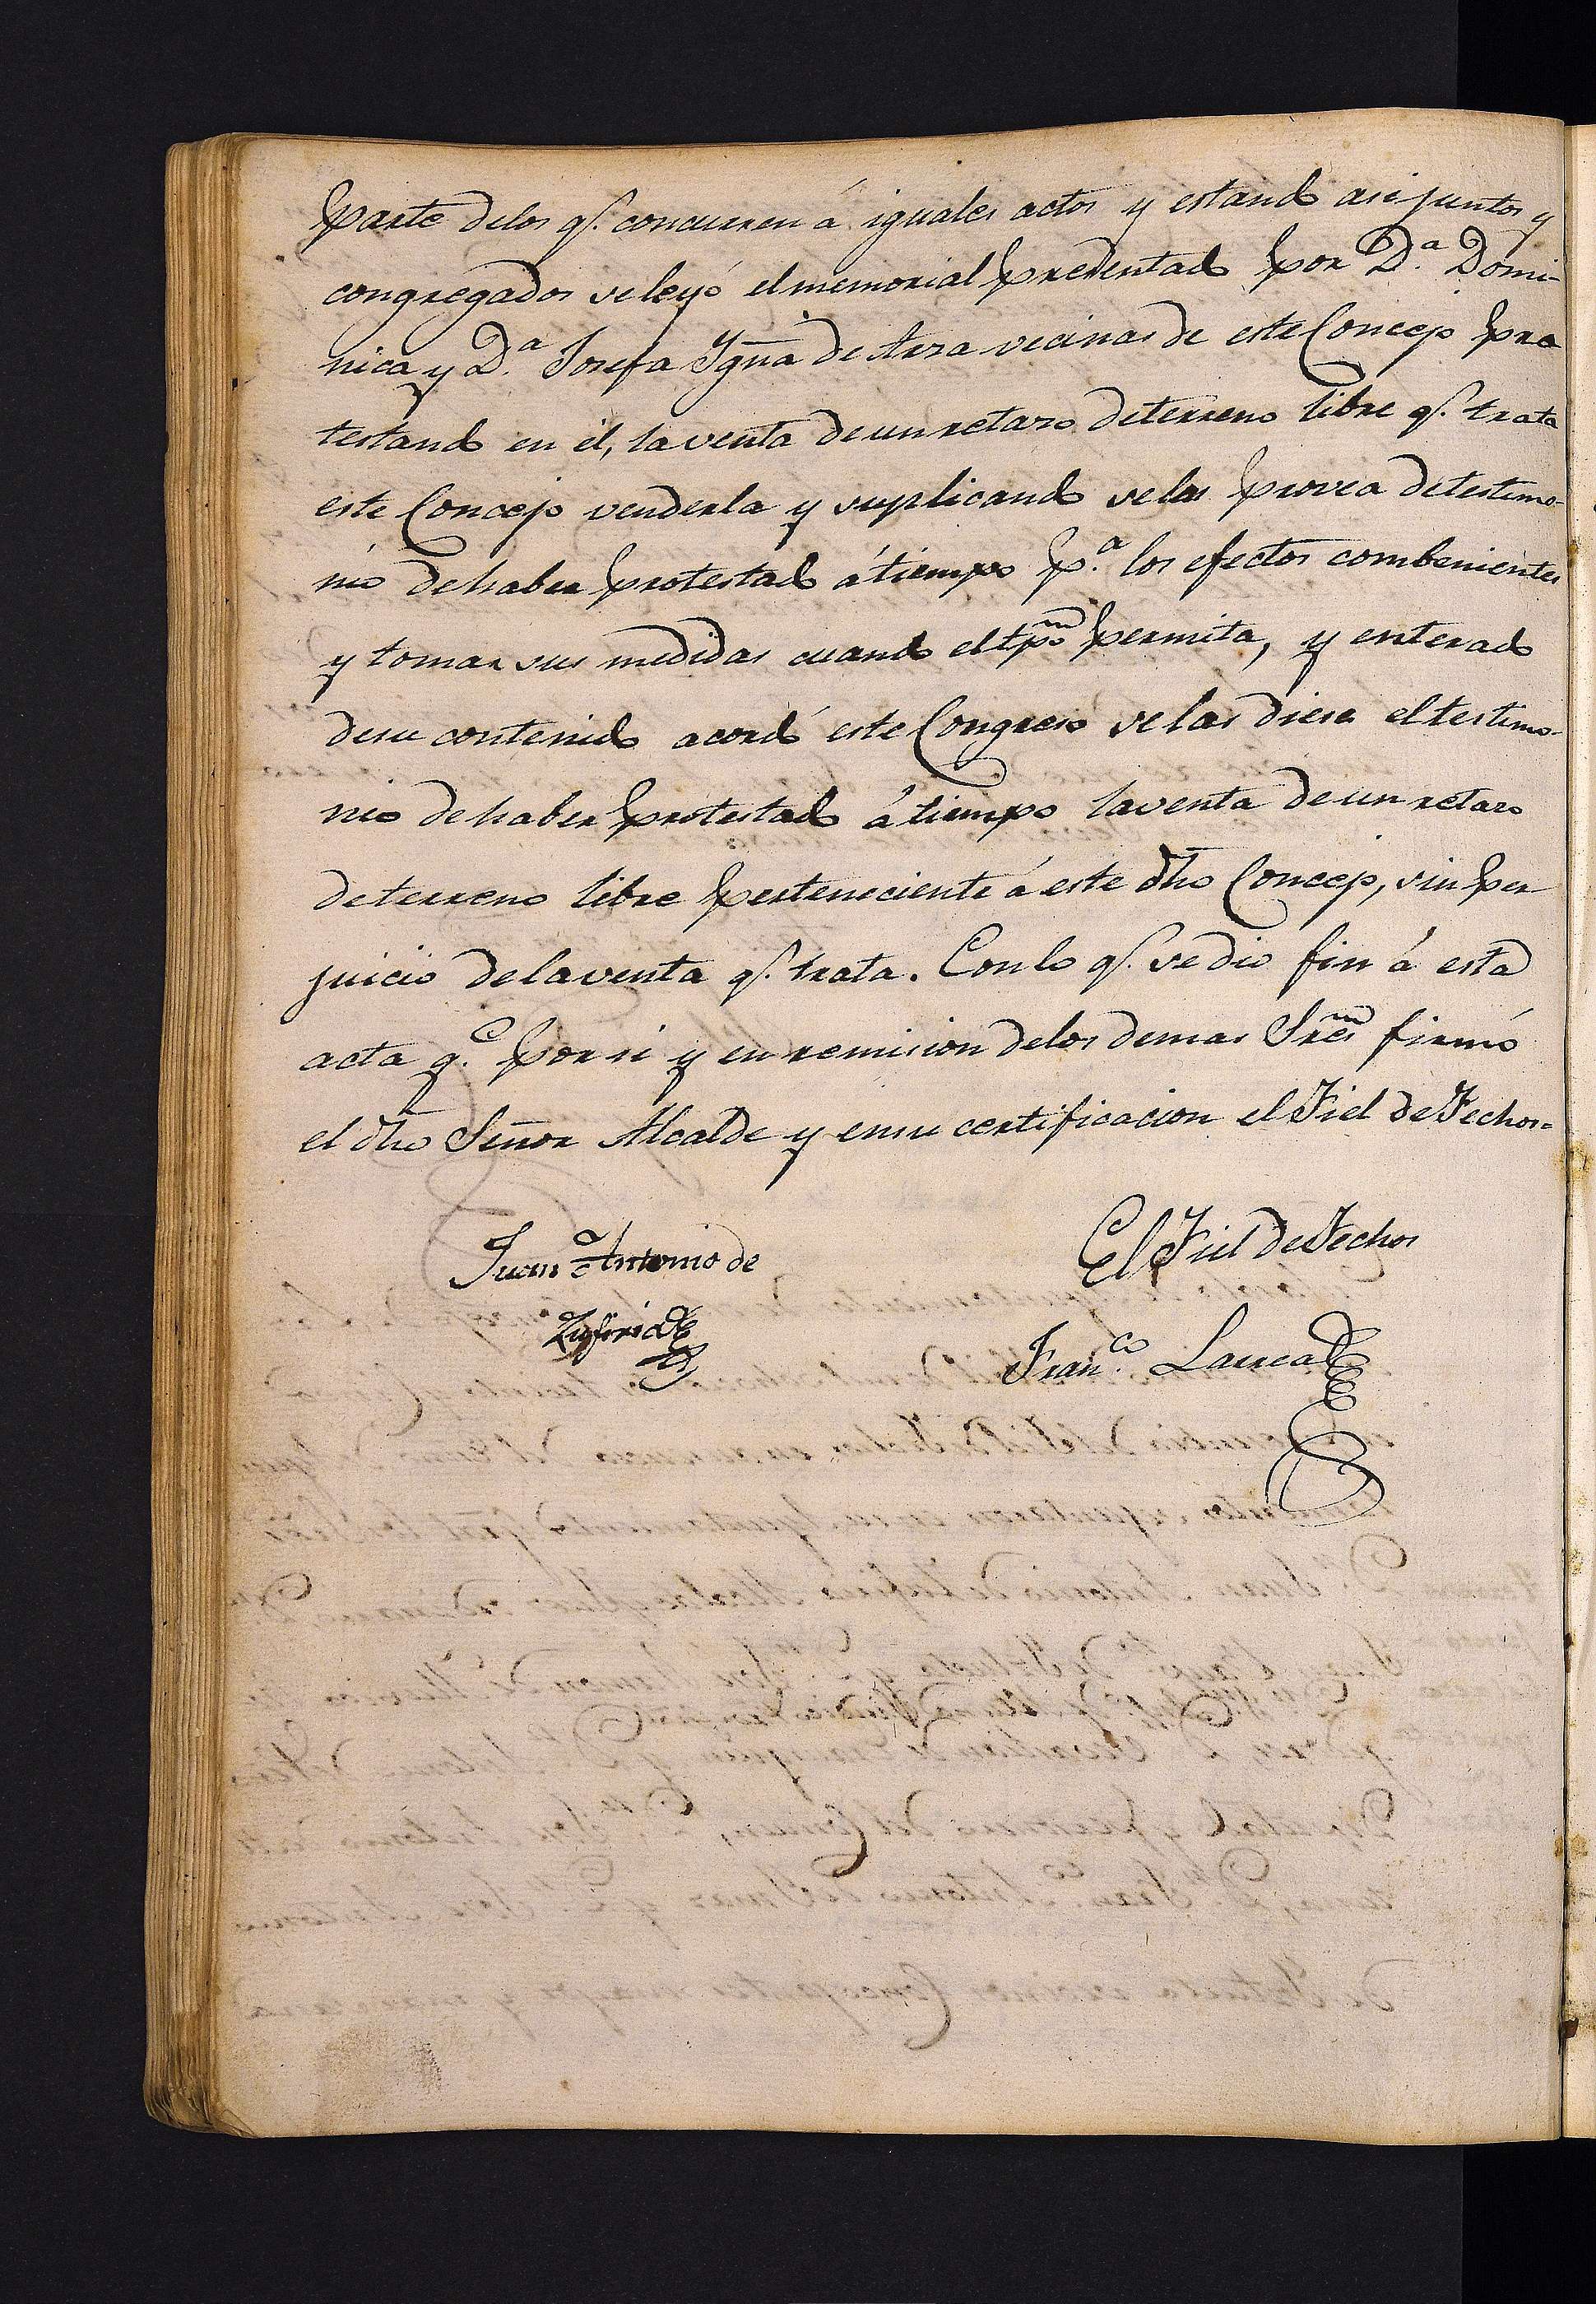 parte delos q.ᵉ concurren á iguales actos y estando asi juntos y
congregados se leyó el memorial presentado por D.ª Domi-
nica y D.ª Josefa Ygn̄a de Arza vecinas de este Concejo pro
testando en él, la venta de un retazo de terreno libre q.ᵉ trata
este Concejo venderla y suplicando se las provea de testimo-
nio de haber protestado á tiempo p.ª los efectos combenientes
y tomar sus medidas cuando el tp̄o permita, y enterado
de su contenido acordó este Congreso se las diese el testimo-
nio de haber protestado á tiempo la venta de un retazo
de terreno libre perteneciente á este dh̄o Concejo, sin per
juicio de la venta q.ᵉ trata. Con lo q.ᵉ se dio fin á esta
acta q.ᵉ por si y en remision delos demas Sres̄ firmó
el dh̄o Señor Alcalde y en su certificacion el Fiel de Fechos=
Juan Antonio de
Zufiria
El Fiel de Fechos
Fran.ᶜᵒ Lauca